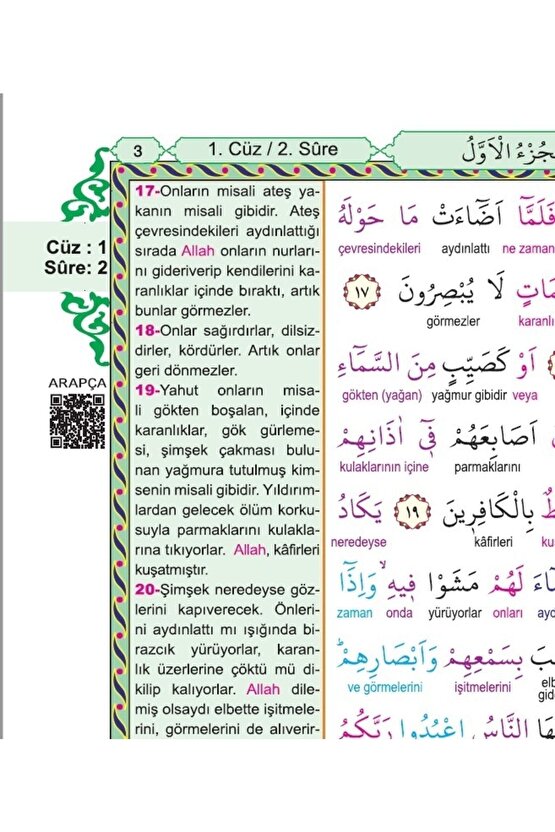 3
1. Cüz / 2. Sûre
اَلْجُزْءُ الْاَوَّلُ
Cüz : 1
Sûre: 2
ARAPÇA
17-Onların misali ateş ya-
kanın misali gibidir. Ateş
çevresindekileri aydınlattığı
sırada Allah onların nurları-
nı gideriverip kendilerini ka-
ranlıklar içinde bıraktı, artık
bunlar görmezler.
18-Onlar sağırdırlar, dilsiz-
dirler, kördürler. Artık onlar
geri dönmezler.
19-Yahut onların misa-
li gökten boşalan, içinde
karanlıklar, gök gürleme-
si, şimşek çakması bulu-
nan yağmura tutulmuş kim-
senin misali gibidir. Yıldırım-
lardan gelecek ölüm korku-
suyla parmaklarını kulakla-
rına tıkıyorlar. Allah, kâfirleri
kuşatmıştır.
20-Şimşek neredeyse göz-
lerini kapıverecek. Önleri-
ni aydınlattı mı ışığında bi-
razcık yürüyorlar, karan-
lık üzerlerine çöktü mü di-
kilip kalıyorlar. Allah dile-
miş olsaydı elbette işitmele-
rini, görmelerini de alıverir-
فَلَمَّٓا اَضَٓاءَتْ مَا حَوْلَهُ
ne zaman aydınlattı çevresindekileri
مَاتٍ لَا يُبْصِرُونَ ﴿١٧﴾
karanlı görmezler
اَوْ كَصَيِّبٍ مِنَ السَّمَٓاءِ
veya yağmur gibidir gökten (yağan)
اَصَابِعَهُمْ ف۪ٓي اٰذَانِهِمْ
parmaklarını kulaklarının içine
بِالْكَافِر۪ينَ ﴿١٩﴾ يَكَادُ
kâfirleri neredeyse
لَهُمْ مَشَوْا ف۪يهِۙ وَاِذَٓا
onları yürüyorlar onda zaman
بِسَمْعِهِمْ وَاَبْصَارِهِمْۜ
işitmelerini ve görmelerini
النَّاسُ اعْبُدُوا رَبَّكُمُ